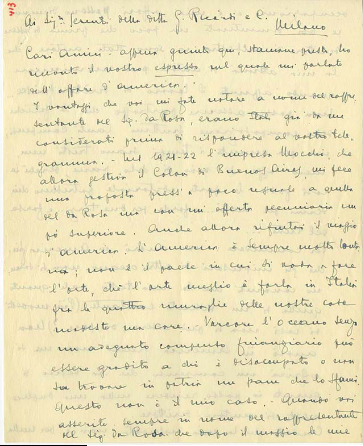 413
Ai Sig.ri Gerenti della ditta G. Ricordi e C.
Milano
Cari Amici: appena giunto qui, stamane presto, ho
ricevuto il vostro espresso sul quale mi parlate
dell'affare d'America.
I vantaggi che voi mi fate notare a nome del rappre
sentante del Sig. da Rosa, erano stati già da me
considerati prima di rispondere al vostro tele
gramma. Nel 1921-22 l'impresa Mocchi, che
allora gestiva il Colon di Buenos Aires, mi fece
una proposta press'a poco uguale a quella
del da Rosa ma con un'offerta pecuniaria un
pò superiore. Anche allora rifiutai il viaggio
d'America. L'America è sempre molto lonta
na; non è il paese in cui si vada a fare
l'arte, chè l'arte meglio è farla in Italia
fra le quattro muraglie delle nostre case
modeste ma care. Varcare l'Oceano senza
un adeguato compenso finanziario può
essere gradito a chi è disoccupato o non
sa trovare in patria un pane che lo sfami
Questo non è il mio caso. Quando voi
asserite sempre in nome del rappresentante
del Sig. da Rosa che dopo il viaggio le mie